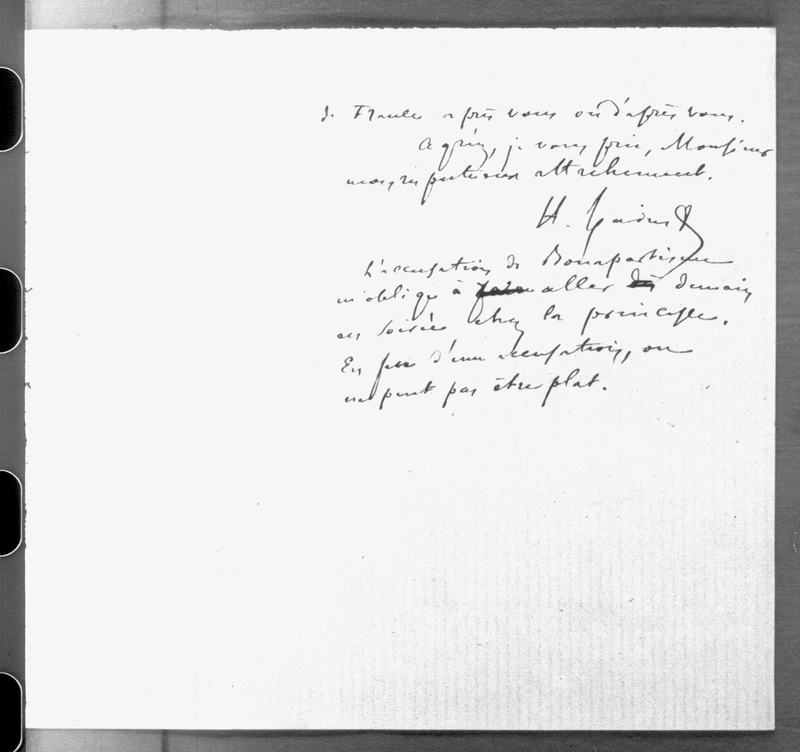 de Traule après vous ou d'après vous.
Agréez, je vous prie, Monsieur
mon respectueux attachement.
H.
L'accusation de Bonapartisme
m'oblige à aller demain
en soirée chez la princesse.
En face d'une accusation, on
ne peut pas être plat.